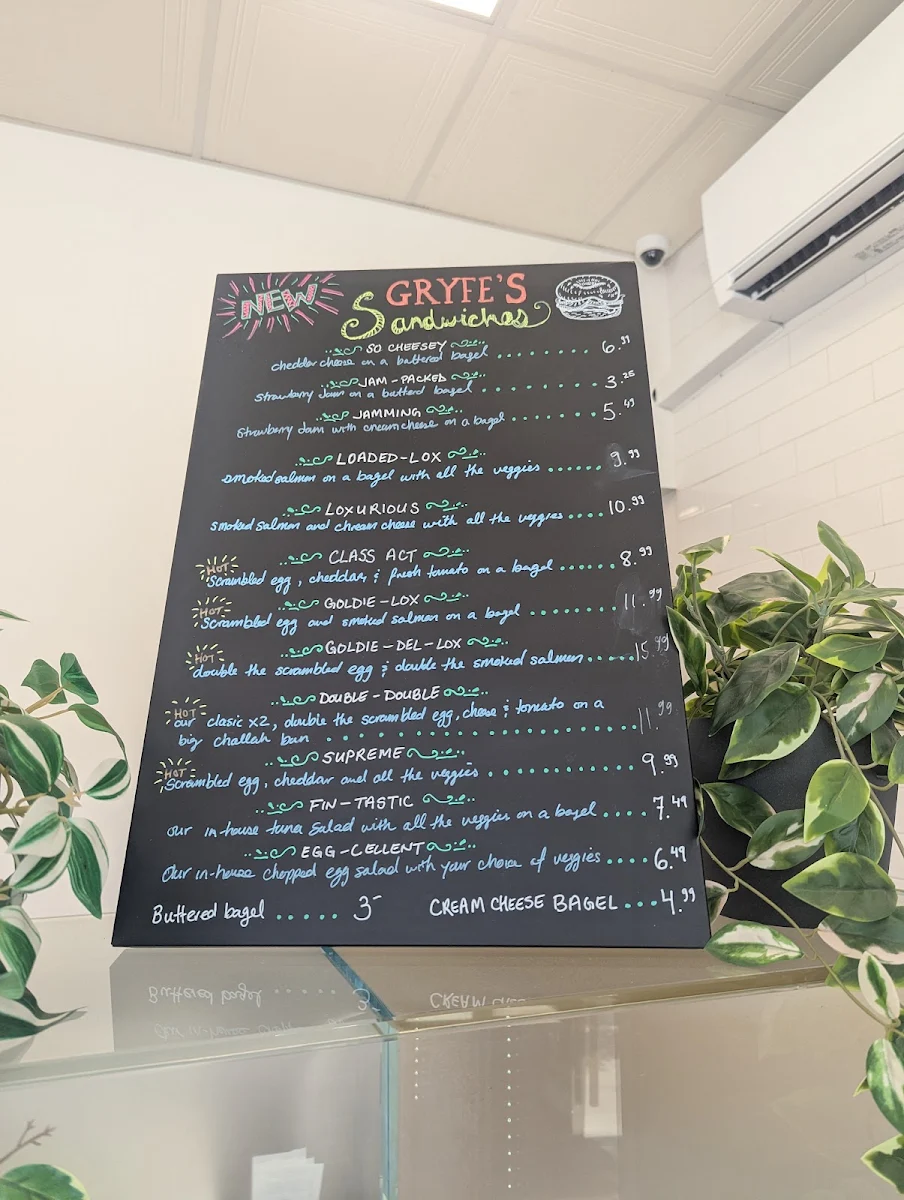 NEW
GRYFE'S
Sandwiches
SO CHEESEY
cheddar cheese on a buttered bagel ........ 6.99
JAM-PACKED
Strawberry Jam on a butterd bagel ........ 3.25
JAMMING
Strawberry Jam with creamcheese on a bagel ........ 5.49
LOADED-LOX
smoked salmon on a bagel with all the veggies ...... 9.99
LOXURIOUS
smoked salmon and chream cheese with all the veggies .... 10.99
CLASS ACT
HOT
Scrambled egg, cheddar, & fresh tomato on a bagel ...... 8.99
GOLDIE-LOX
HOT
Scrambled egg and smoked salmon on a bagel ........ 11.99
GOLDIE-DEL-LOX
HOT
double the scrambled egg & double the smoked salmon ..... 15.99
DOUBLE-DOUBLE
HOT
our clasic x2, double the scrambled egg, cheese & tomato on a
big challah bun .................... 11.99
SUPREME
HOT
Scrambled egg, cheddar and all the veggies ........... 9.99
FIN-TASTIC
our in-house tuna salad with all the veggies on a bagel .... 7.49
EGG-CELLENT
Our in-house chopped egg salad with your choice of veggies .... 6.49
Buttered bagel ..... 3-
CREAM CHEESE BAGEL ... 4.99